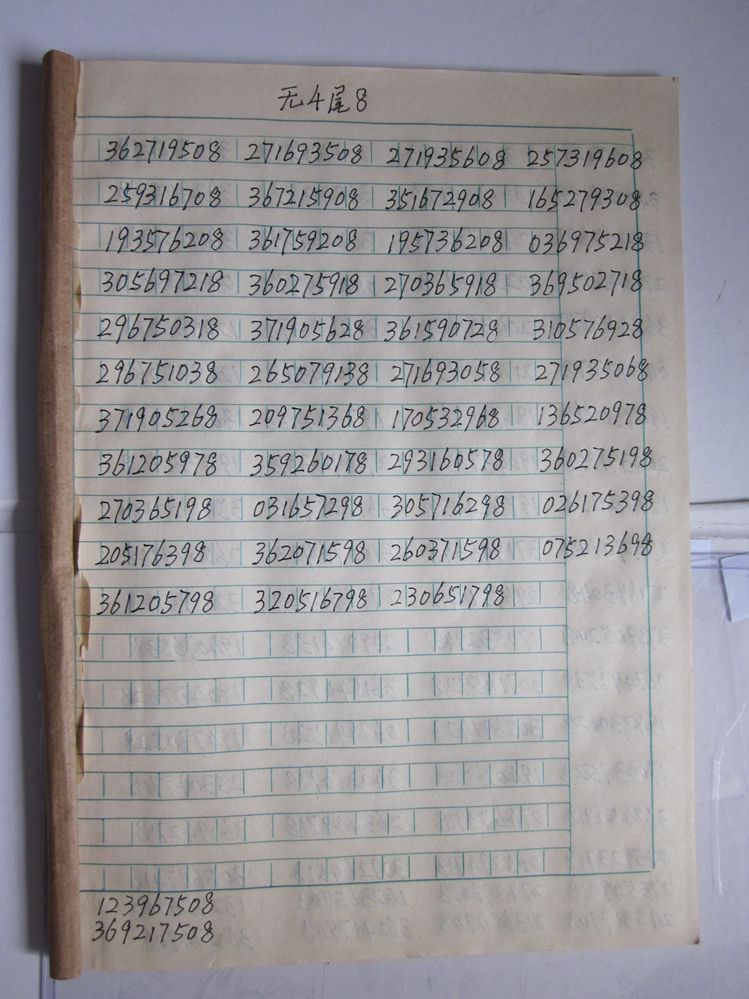 无4尾8
362719508 271693508 271935608 257319608
259316708 367215908 351672908 165279308
193576208 361759208 195736208 036975218
305697218 360275918 270365918 369502718
296750318 371905628 361590728 310576928
296751038 265079138 271693058 271935068
371905268 209751368 170532968 136520978
361205978 359260178 293160578 360275198
270365198 031657298 305716298 026175398
205176398 362071598 260371598 075213698
361205798 320516798 230651798
123967508
369217508